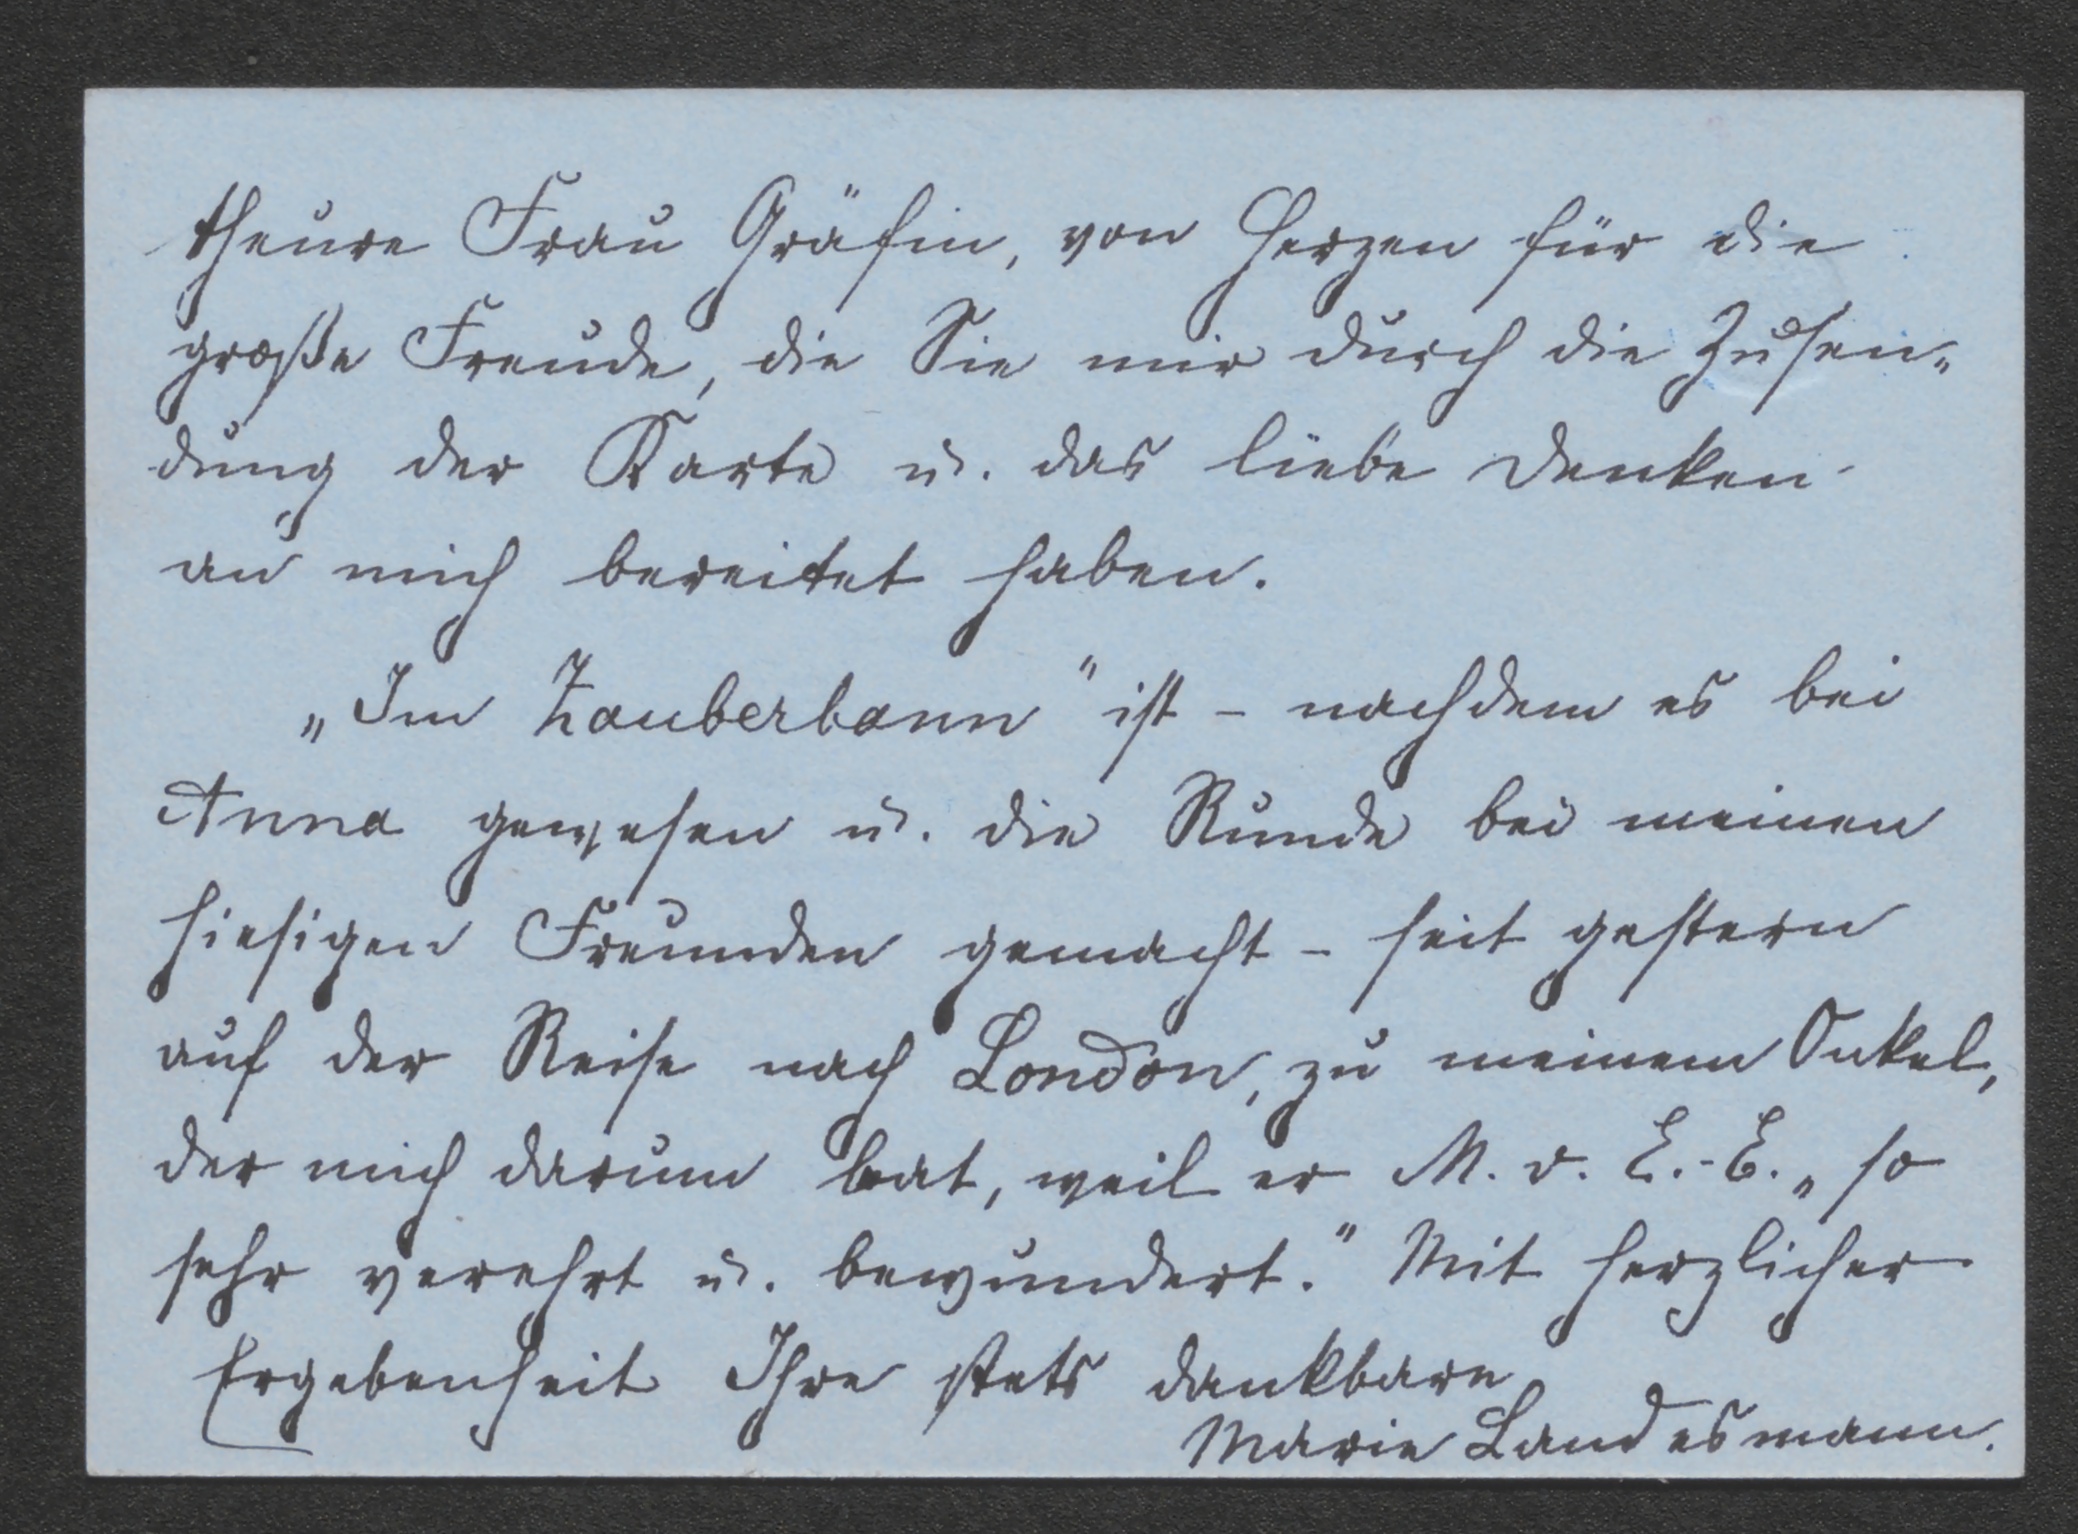 theure Frau Gräfin, von Herzen für die
große Freude, die Sie mir durch die Zusen-
dung der Karte u. das liebe Denken
an mich bereitet haben.
„Im Zauberbann" ist – nachdem es bei
Anna gewesen u. die Runde bei meinen
hiesigen Freunden gemacht – seit gestern
auf der Reise nach London, zu meinem Onkel,
der mich darum bat, weil er M. v. E.-E. „so
sehr verehrt u. bewundert." Mit herzlicher
Ergebenheit Ihre stets dankbare
Marie Landesmann.